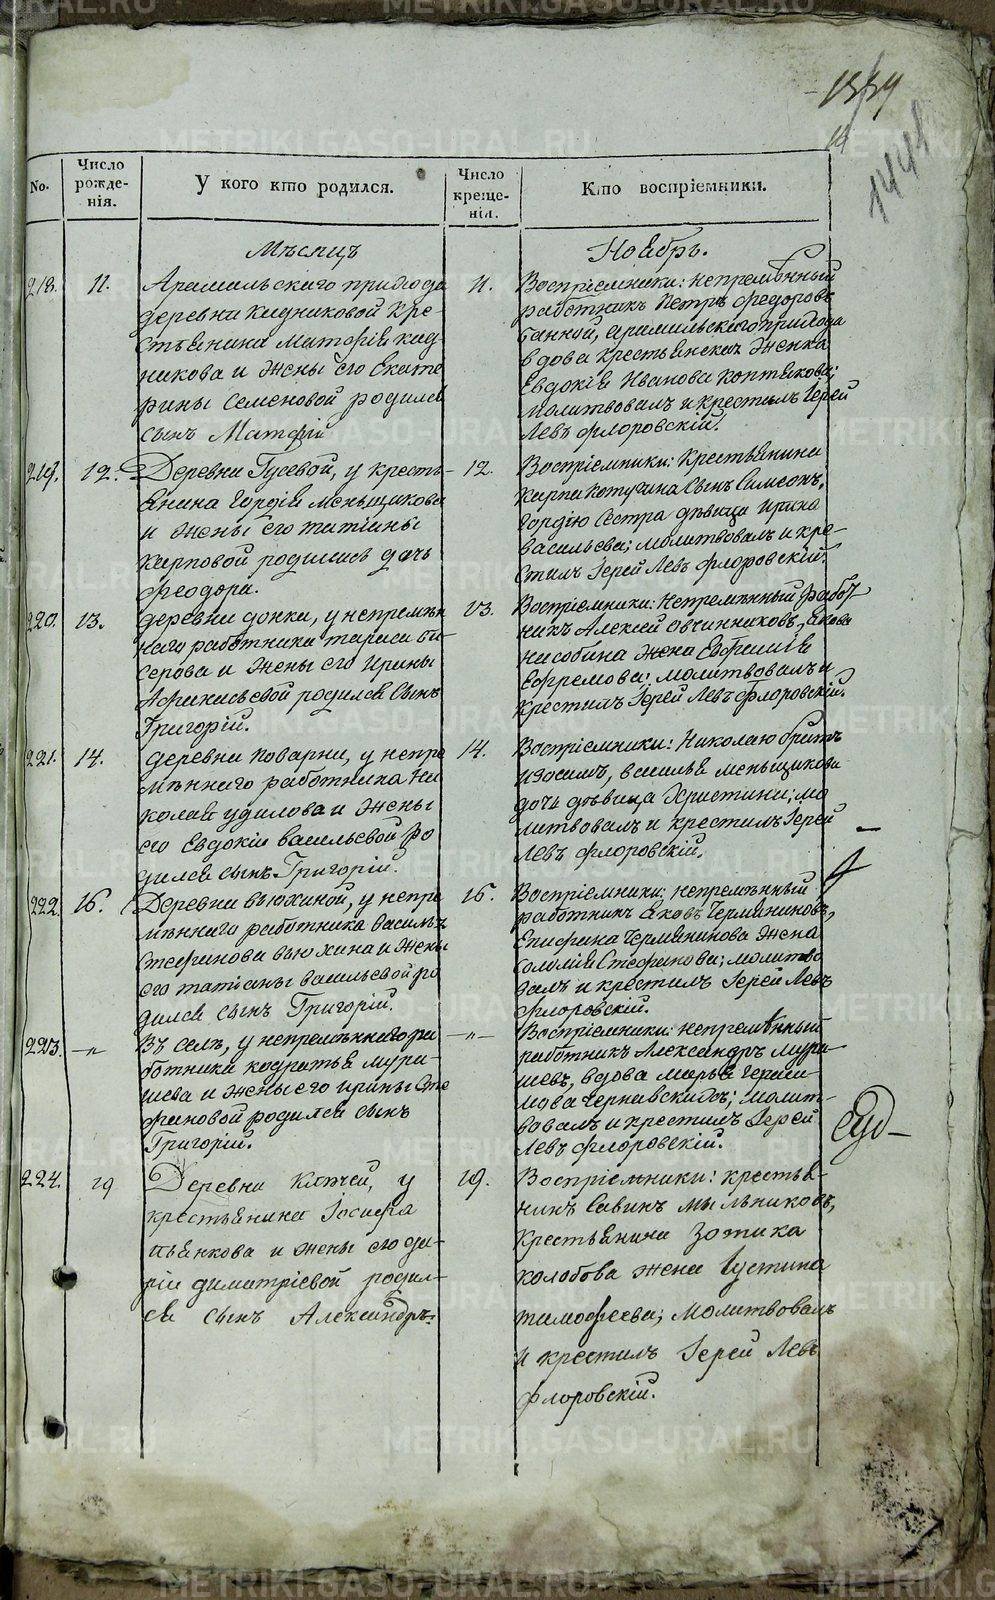 1444
No.
Число рожде-
нія.
У кого кто родился.
Число креще-
нія.
Кто воспріемники.
Мѣсяцъ
Ноябрь.
218.
11.
Арамильскаго прихода
деревни Кадниковой Кре-
стьянина Матфія Кад
никова и жены его Екате
рины Семеновой родился
сынъ Матфій
11.
Воспріемники: непремѣнный
работникъ Петръ Федоровъ
Банной, арамильскаго прихода
вдова крестьянская женка
Евдокія Иванова Коптякова;
молитвовалъ и крестилъ Іерей
Левъ Флоровскій.
219.
12.
Деревни Гусевой, у кресть-
янина Гордія Меньщикова
и жены его татіаны
Карповой родилась дочь
Феодора.
12.
Воспріемники: Крестьянина
Карпа Котугина Сынъ Симеонъ,
Гордію Сестра дѣвица Ирина
Васильева; молитвовалъ и кре-
стилъ Іерей Левъ Флоровскій.
220.
13.
деревни донки, у непремѣн
наго работника тараса Би-
серова и жены его Ирины
Афанасьевой родился Сынъ
Григорій.
13.
Воспріемники: Непремѣнный работ
никъ Алексей Овчинниковъ, Якова
жена Евфимія
Ефремова; молитвовалъ и
крестилъ Іерей Левъ Флоровскій.
221.
14.
деревни поварни, у непре
мѣннаго работника Ни
колая удилова и жены
его Евдокіи васильевой ро
дился сынъ Григорій.
14.
Воспріемники: Николаю братъ
изосимъ, василья меньщикова
дочь дѣвица Христина; мо
литвовалъ и крестилъ Іерей
Левъ Флоровскій.
222.
16.
Деревни вьюхиной, у непре
мѣннаго работника василья
Стефанова вьюхина и жены
его татіаны васильевой ро
дился сынъ Григорій.
16.
Воспріемники: непремѣнный
работникъ Яковъ Чермяниновъ,
Епифана Чермянинова жена
Соломія Стефанова; молитво
валъ и крестилъ Іерей Левъ
Флоровскій.
223.
—"—
Въ селѣ, у непремѣннаго ра
ботника кодратья мура-
шева и жены его ирины Сте
фановой родился сынъ
Григорій.
—"—
Воспріемники: непремѣнный
работникъ Александръ мура-
шевъ, вдова марья Гераси-
мова Чернавскихъ; молит-
вовалъ и крестилъ Іерей
Левъ Флоровскій.
224.
19
Деревни Ключей, у
крестьянина Іосифа
пьянкова и жены его да-
ріи димитріевой родил-
ся сынъ Александръ.
19.
Воспріемники: крестья-
нинъ Савинъ мыльниковъ,
крестьянина Зотика
колобова жена Іустина
тимофеева; молитвовалъ
и крестилъ Іерей Левъ
Флоровскій.
METRIKI.GASO-URAL.RU